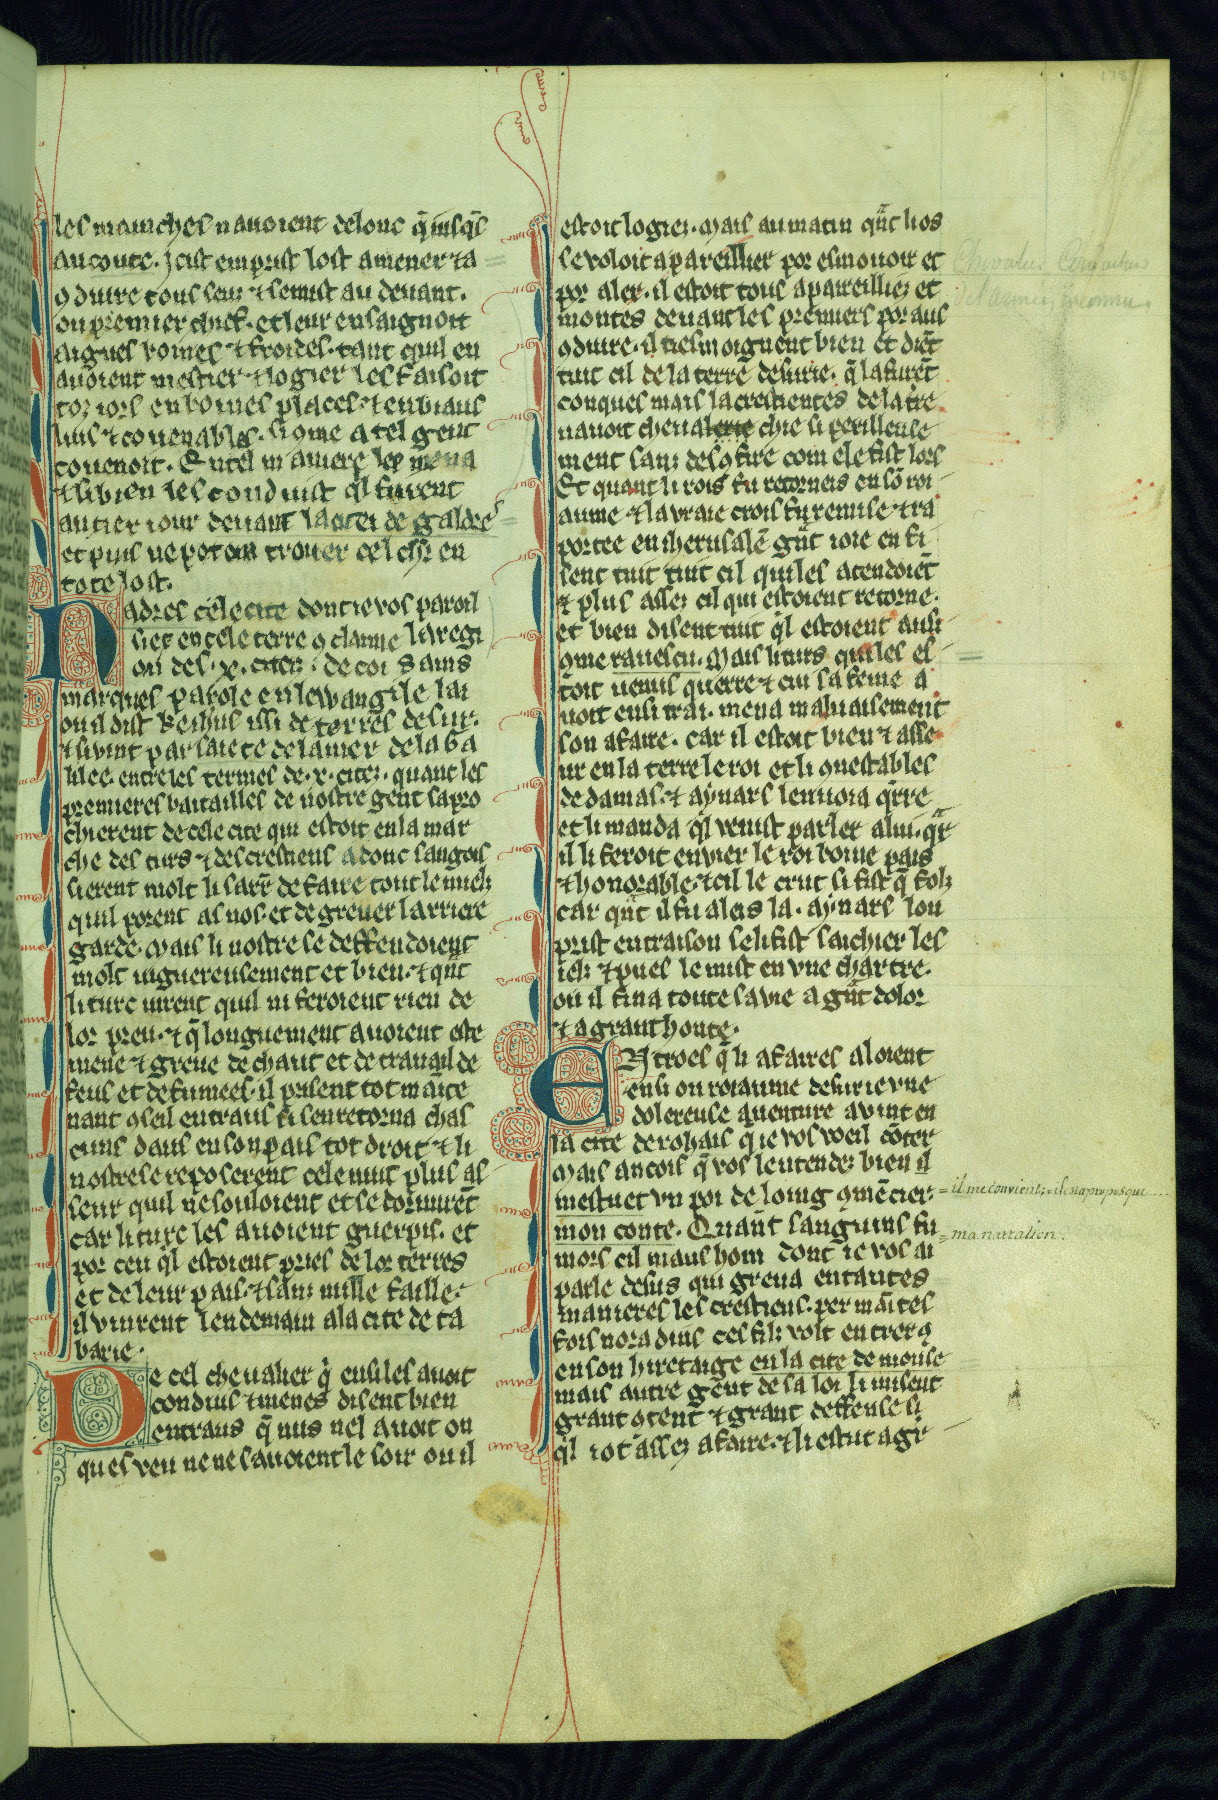 les manches n avoient delonc q̄ iusq̄s
au coute. ⁊ cist emprist lost a mener ⁊ a
9duire tous seur ⁊ se mist au devant.
ou premier chief. et leur ensaignoit
aigues boines ⁊ froides. tant quil en
avoient mestier ⁊ logier les faisoit
toz iors en boines places. ⁊ en biaus
lius ⁊ covenables. si 9me a tel gent
covenoit. En tel maniere les mena
⁊ si bien les conduist ql furent
au tier iour devant la citei de gadre
et puis ne potem trover cel chlr en
tote lost.
Nadres cele cite dont ie vos paroil
siet en cele terre 9 clamme la regi
on des .x. citez. de coi sains
marques parole en lewangile lai
ou il dist ke ihus issi de terres de sur.
⁊ si vint par saiete de la mer de la Ga
lilee. entre les termes de .x. citez. quant les
premieres batailles de nostre gent sapro
chierent de cele cite qui estoit en la mar
che des turs ⁊ des crestiens adonc sangois
sierent molt li sarr̄ de faire tout le mielz
quil porent as nos. et de grever larriere
garde. Mais li nostre se deffendoient
molt viguereusement et bien. ⁊ qn̄t
li turc virent quil ni feroient rien de
lor preu. ⁊ q̄ longuement avoient este
mene ⁊ greve de chaut et de travail de
feus et de fumees. il prisent tot mai̅te
nant 9seil entraus si sen retorna chas
cuns dans en son pais tot droit. ⁊ li
nostre se reposerent cele nuit plus as
seur quil ne souloient et se dormirēt
car li turc les avoient guerpis. et
por ceu ql estoient pries de lor terres
et de leur pais. ⁊ sanz nulle faille.
il vinrent lendemain a la cite de ta
barie.
De cel chevalier q̄ ensi les avoit
condius ⁊ menes disent bien
entraus q̄ nus nel avoit on
ques veu ne ne savoient le soir ou il
estoit logiez. Mais au matin qn̄t li os
se voloit apareillier por esmovoir et
por aler. il estoit tous apareilliez et
montes devant les premiers por aus
9duire. il tiesmoignent bien et diēt
tuit cil de la terre de surie. q̄ la furēt
conques mais la crestientes de la tre
navoit chevalerie chie si perilleuse
ment sanz des9fire com ele fist lors
Et quant li rois fu retorneis en sō roi
aume ⁊ la vraie crois fu remise ⁊ ra
portee en iherusalē gn̄t ioie en fi
sent tuit tuit cil qui les atendoiēt
⁊ plus assez cil qui estoient retorne.
et bien disent tuit ql estoient ausi
9me ravescu. Mais li turs qui les es
toit venus querre ⁊ cui sa feme a
voit ensi trai. mena malvaisement
son afaire. car il estoit bien ⁊ asse
ur en la terre le roi et li 9nestables
de damas. ⁊ aynars lenvoia q̄rre
et li manda ql venist parler a lui. qr
il li feroit envier le roi boine pais
⁊ honorable. ⁊ cil le crut si fist q̄ folz
car qn̄t il fu aleis la. aynars lou
prist en traison se li fist saichier les
ielz ⁊ pues le mist en une chartre.
ou il fina toute sa vie a gn̄t dolor
⁊ a grant honte.
Entroes q̄ li afaires aloient
ensi ou roiaume de surie une
dolereuse aventure avint en
la cite de rohais q ie vos voeil cōter
Mais ancois q̄ vos lentendez bien il
mestuet un poi de loing 9mēcier.
mon conte. Quant sanguins fu
mors cil maus hom dont ie vos ai
parle desus qui greva en tantes
manieres les crestiens. per maītes
fois noradins ces filz volt entrer 9
en son hiretaige en la cite de mouse
mais autre gent de sa loi li misent
grant 9tent ⁊ grant deffense si
ql i ot assez a faire. ⁊ li estut a gr
178
Chevalier
= il me convient; il en a propos que....
= ma narration.